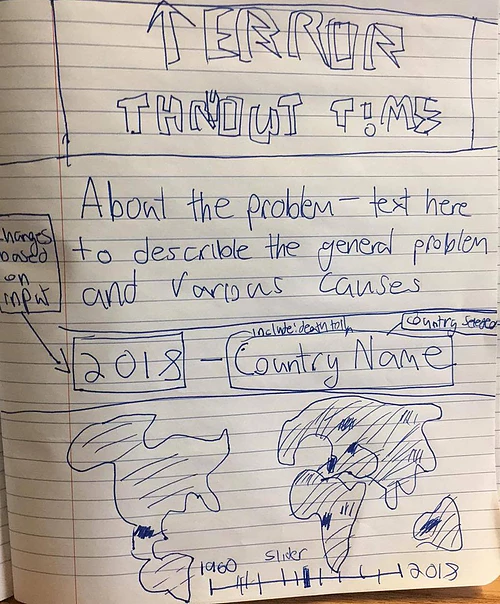 TERROR
THROUT T!ME
About the problem — text here
to describle the general problem
and various causes
changes
based
on
input
include: death toll
Country Selected
2018 — Country Name
1960 slider 2018